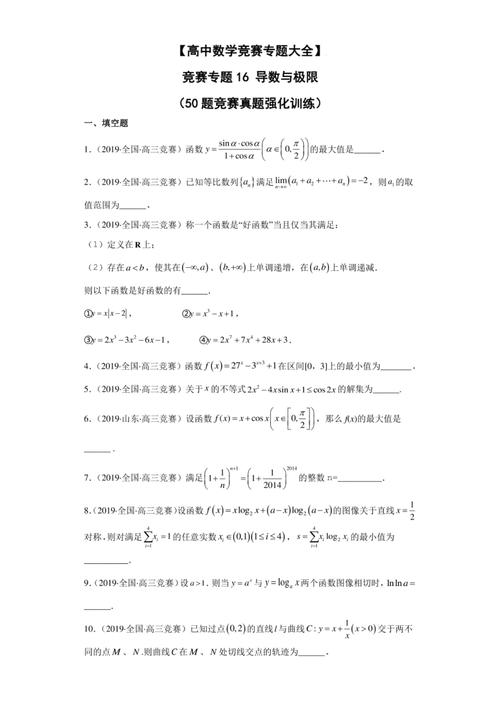 【高中数学竞赛专题大全】
竞赛专题16 导数与极限
（50题竞赛真题强化训练）
一、填空题
1.（2019·全国·高三竞赛）函数 y = (sinα·cosα)/(1+cosα) (α∈(0, π/2)) 的最大值是______．
2.（2019·全国·高三竞赛）已知等比数列{aₙ}满足 lim(n→∞)(a₁+a₂+⋯+aₙ)=−2，则a₁的取
值范围为______．
3.（2019·全国·高三竞赛）称一个函数是“好函数”当且仅当其满足：
（1）定义在R上；
（2）存在a<b，使其在(−∞,a)、(b,+∞)上单调递增，在(a,b)上单调递减．
则以下函数是好函数的有______．
①y=x|x−2|， ②y=x³−x+1，
③y=2x³−3x²−6x−1， ④y=2x⁷+7x⁴+28x+3．
4.（2019·全国·高三竞赛）函数f(x)=27ˣ−3ˣ⁺³+1在区间[0，3]上的最小值为_______．
5.（2019·全国·高三竞赛）关于x的不等式2x²−4x sin x+1≤cos2x的解集为______．
6.（2019·山东·高三竞赛）设函数f(x)=x+cos x(x∈[0, π/2])，那么f(x)的最大值是
______．
7.（2019·全国·高三竞赛）满足(1+1/n)ⁿ⁺¹=(1+1/2014)²⁰¹⁴的整数n=__________．
8.（2019·全国·高三竞赛）设函数f(x)=xlog₂x+(a−x)log₂(a−x)的图像关于直线x=1/2
对称，则对满足∑(i=1→4)xᵢ=1的任意实数xᵢ∈(0,1)(1≤i≤4)，s=∑(i=1→4)xᵢlog₂xᵢ的最小值为
__________．
9.（2019·全国·高三竞赛）设a>1．则当y=aˣ与y=logₐx两个函数图像相切时，lnln a=
______．
10.（2019·全国·高三竞赛）已知过点(0,2)的直线l与曲线C:y=x+1/x(x>0)交于两不
同的点M、N.则曲线C在M、N处切线交点的轨迹为______．